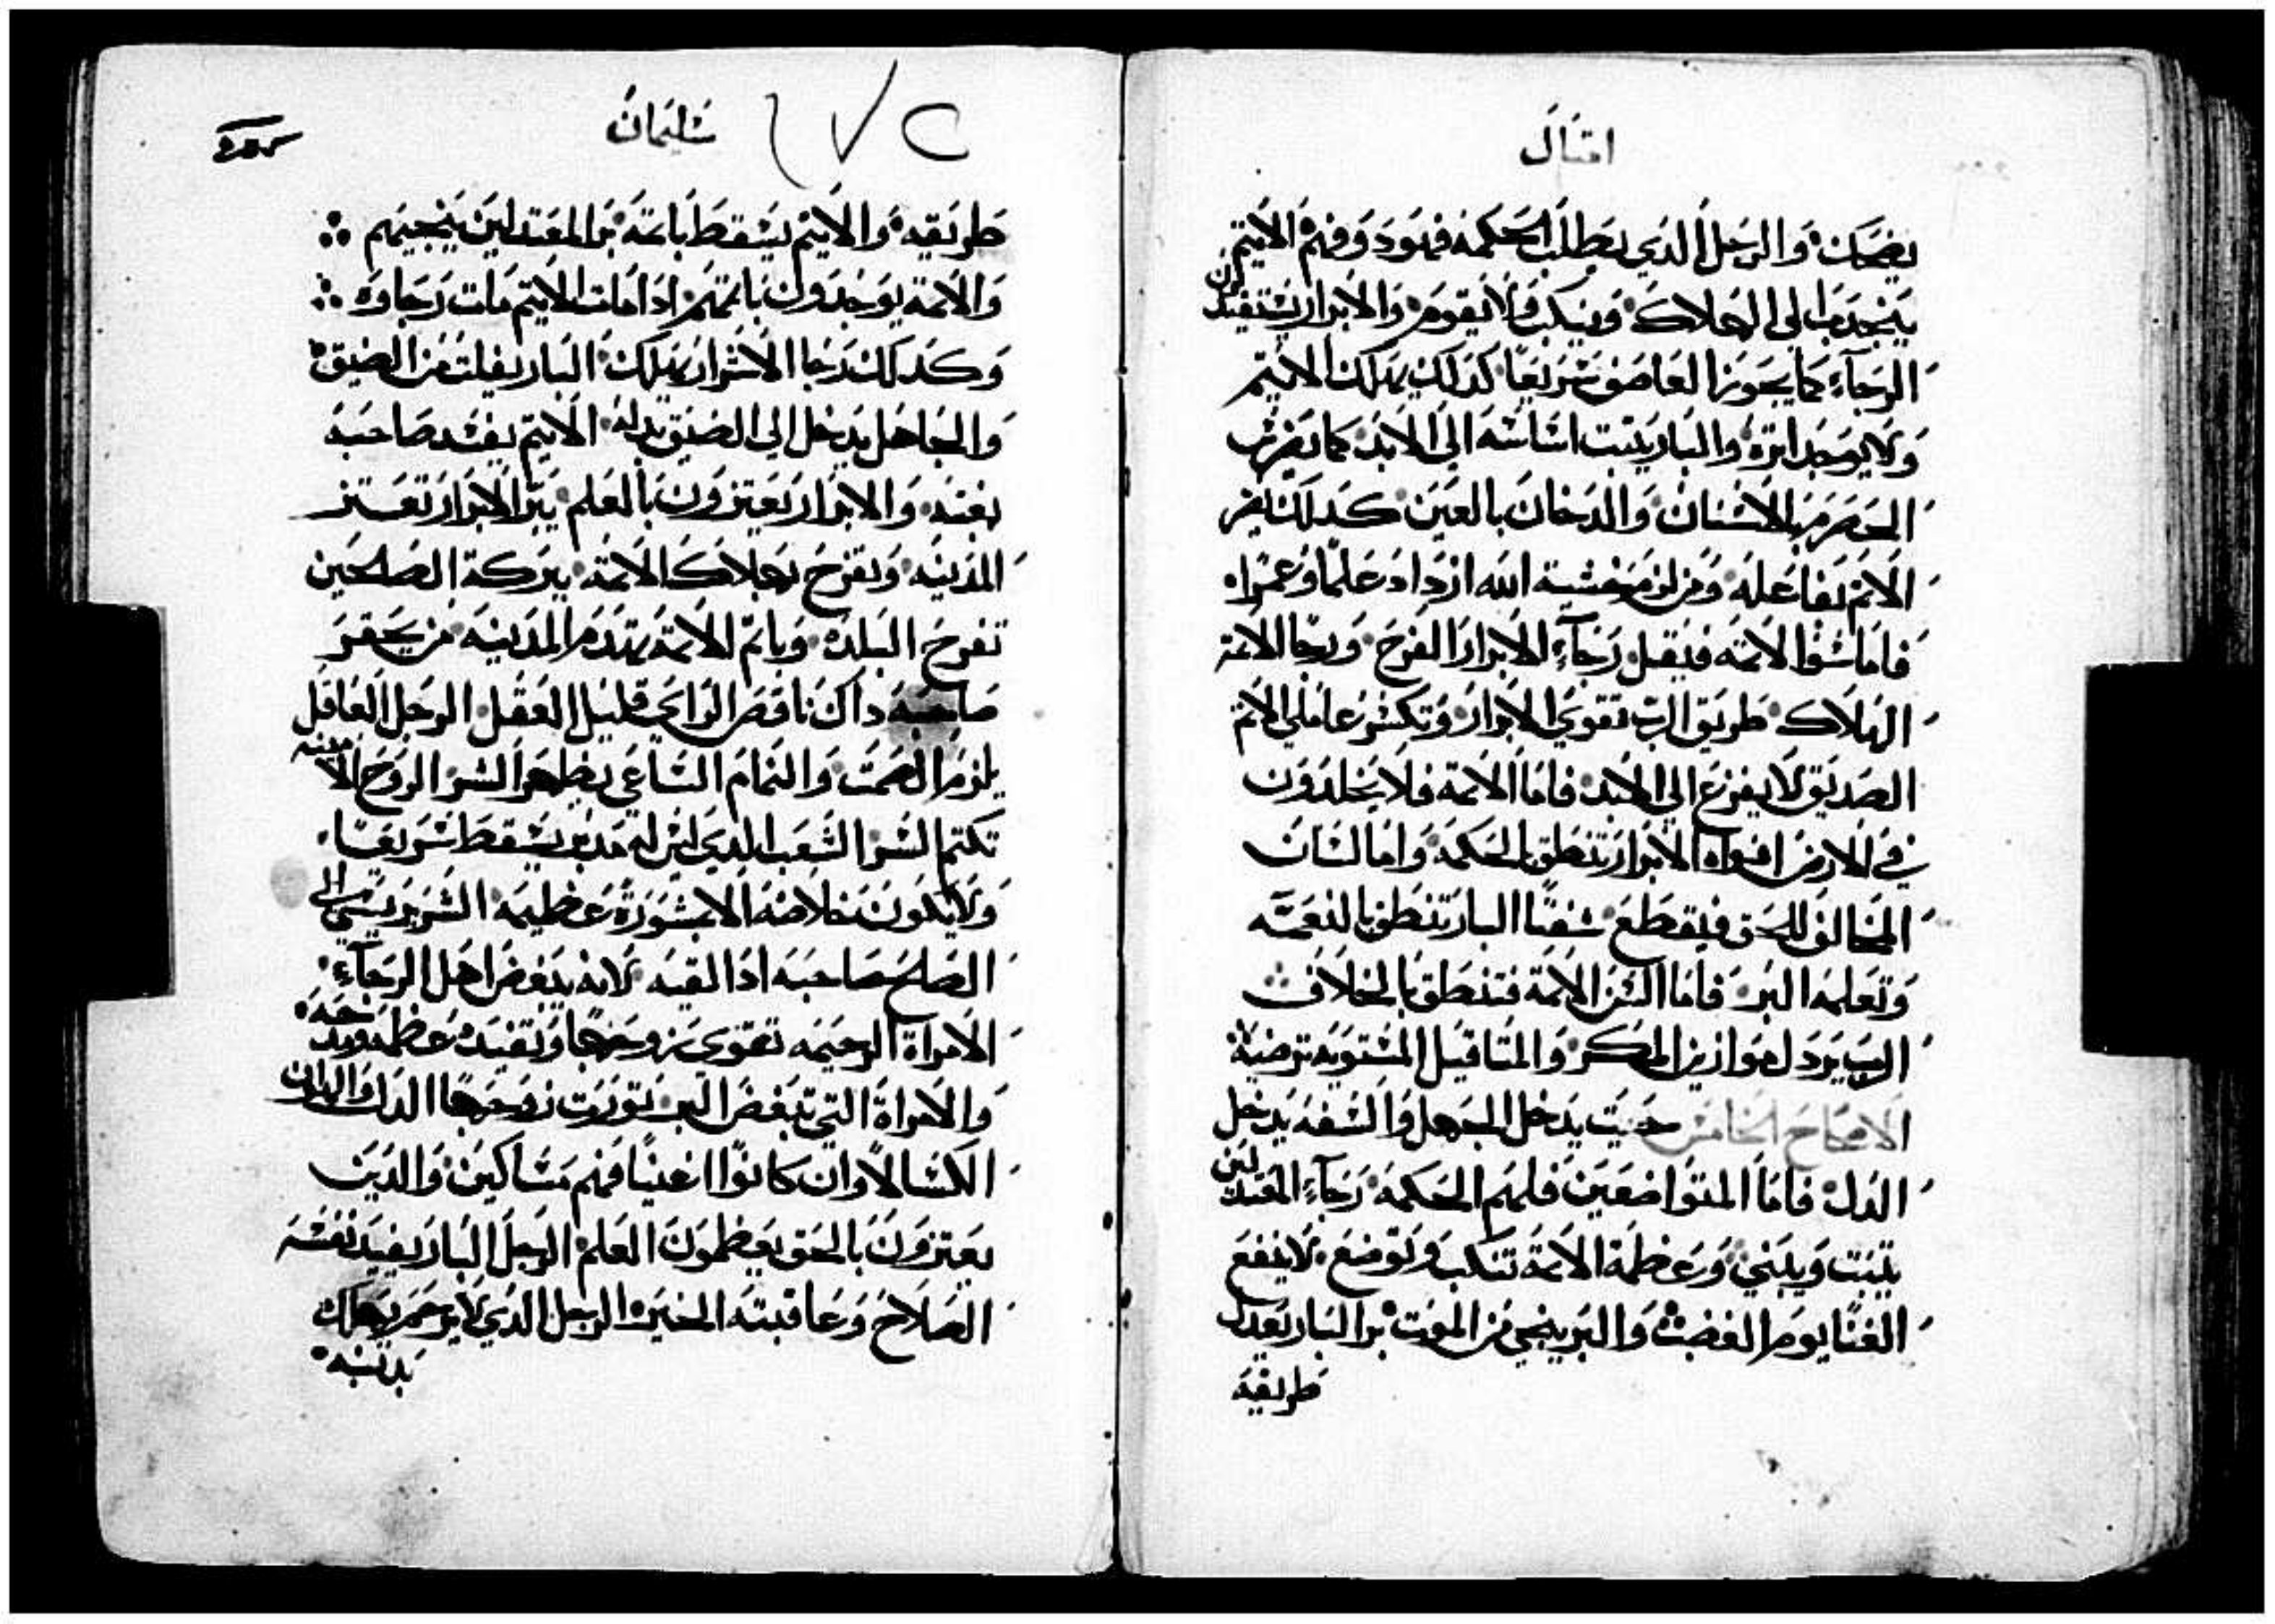 امتال
يضحك والرجل الدي يطلب الحكمه فهو د وفهم الاتيم
ينجدب الي الهلاك وينكب ولا يقوم والابرار يستفيدون
الرجاء كما يجوز العاصف سريعا كدلك يهلك الاتيم
ولا يوجد اتره والبار يتبت اساسه الي الابد كما يضرس
الحصرم بالاسنان والدخان بالعين كدلك يضر
الاتم بفاعله ومن لزم خشية الله ازداد علما وعمرا
فاما سنوا الاتمه فيقل رجاء الابرار الفرح ورجا الاتمة
الهلاك طريق الرب تقوي الابرار وتكسر عاملي الاتم
الصديق لا يفزع الي الابد فاما الاتمة فلا يخلدون
في الارض افواه الابرار تنطق بالحكمه واما لسان
المخالف للحق فيقطع شفتا البار تنطق بالنعمه
وتعلمه البر فاما السن الاتمة فتنطق بالخلاف
الرب يردل موازين المكر والمتاقيل المستويه ترضيه
الاصحاح الخامس حيت يدخل الجهل والسفه يدخل
الدل فاما المتواضعين فلهم الحكمه رجاء المعتدلين
يتبت ويبني وعظمة الاتمة تنكب وتوضع لا ينفع
الغنا يوم الغضب والبر ينجي من الموت بر البار يعدل
طريقه
سليمان
طريقه والاتيم يسقط باتمه بر المعتدلين ينجيهم
والاتمة يوجدون باتمهم ادا مات الاتيم مات رجاوه
وكدلك رجا الاشرار يهلك البار يفلت من الضيق
والجاهل يدخل الي الضيق بدله الاتيم يفسد صاحبه
بغته والابرار يعتزون بالعلم ببر الابرار تعتز
المدينه وتفرح بهلاك الاتمه ببركة الصالحين
تفرح البلده وباتم الاتمة يتهدم المدينه من يحقر
صاحبه داك ناقص الراي قليل العقل الرجل العاقل
يلزم الصمت والنمام الساعي يظهر السر الروح الامينه
تكتم السر الشعب الدي ليس له مدبر يسقط سريعا
ولا يكون خلاصه الا بمشورة عظيمه الشرير يسي الي
الصالح صاحبه ادا لقيه لانه يبغض اهل الرجاء
الامراة الرحيمه تقوي بزوجها وتفيده عظمه ومدحه
والامراة التي تبغض البر تورت زوجها الدل والهوان
الكسالا وان كانوا اغنيا فهم مساكين والدين
يعتزون بالحق يعظمون العلم الرجل البار يفيد نفسه
الصلاح وعاقبته الخيره الرجل الدي لا يرحم يهلك
بدنبه